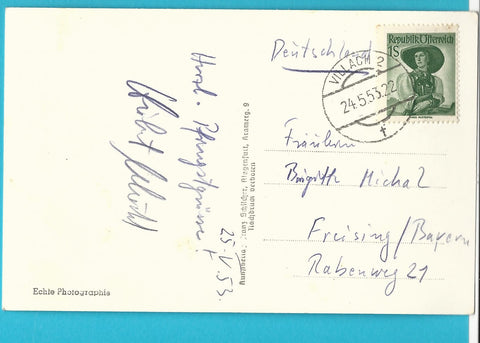 Herzl. Pfingstgrüsse!
25.V.53.
Echte Photographie
Aufnahme: Franz Schilcher, Klagenfurt, Aramerg. 9
Nachdruck verboten
Deutschland
Republik Österreich
1S
VILLACH 2
24.5.53.22
Fräulein
Birgitte Michal
Freising/Bayern
Rabenweg 21